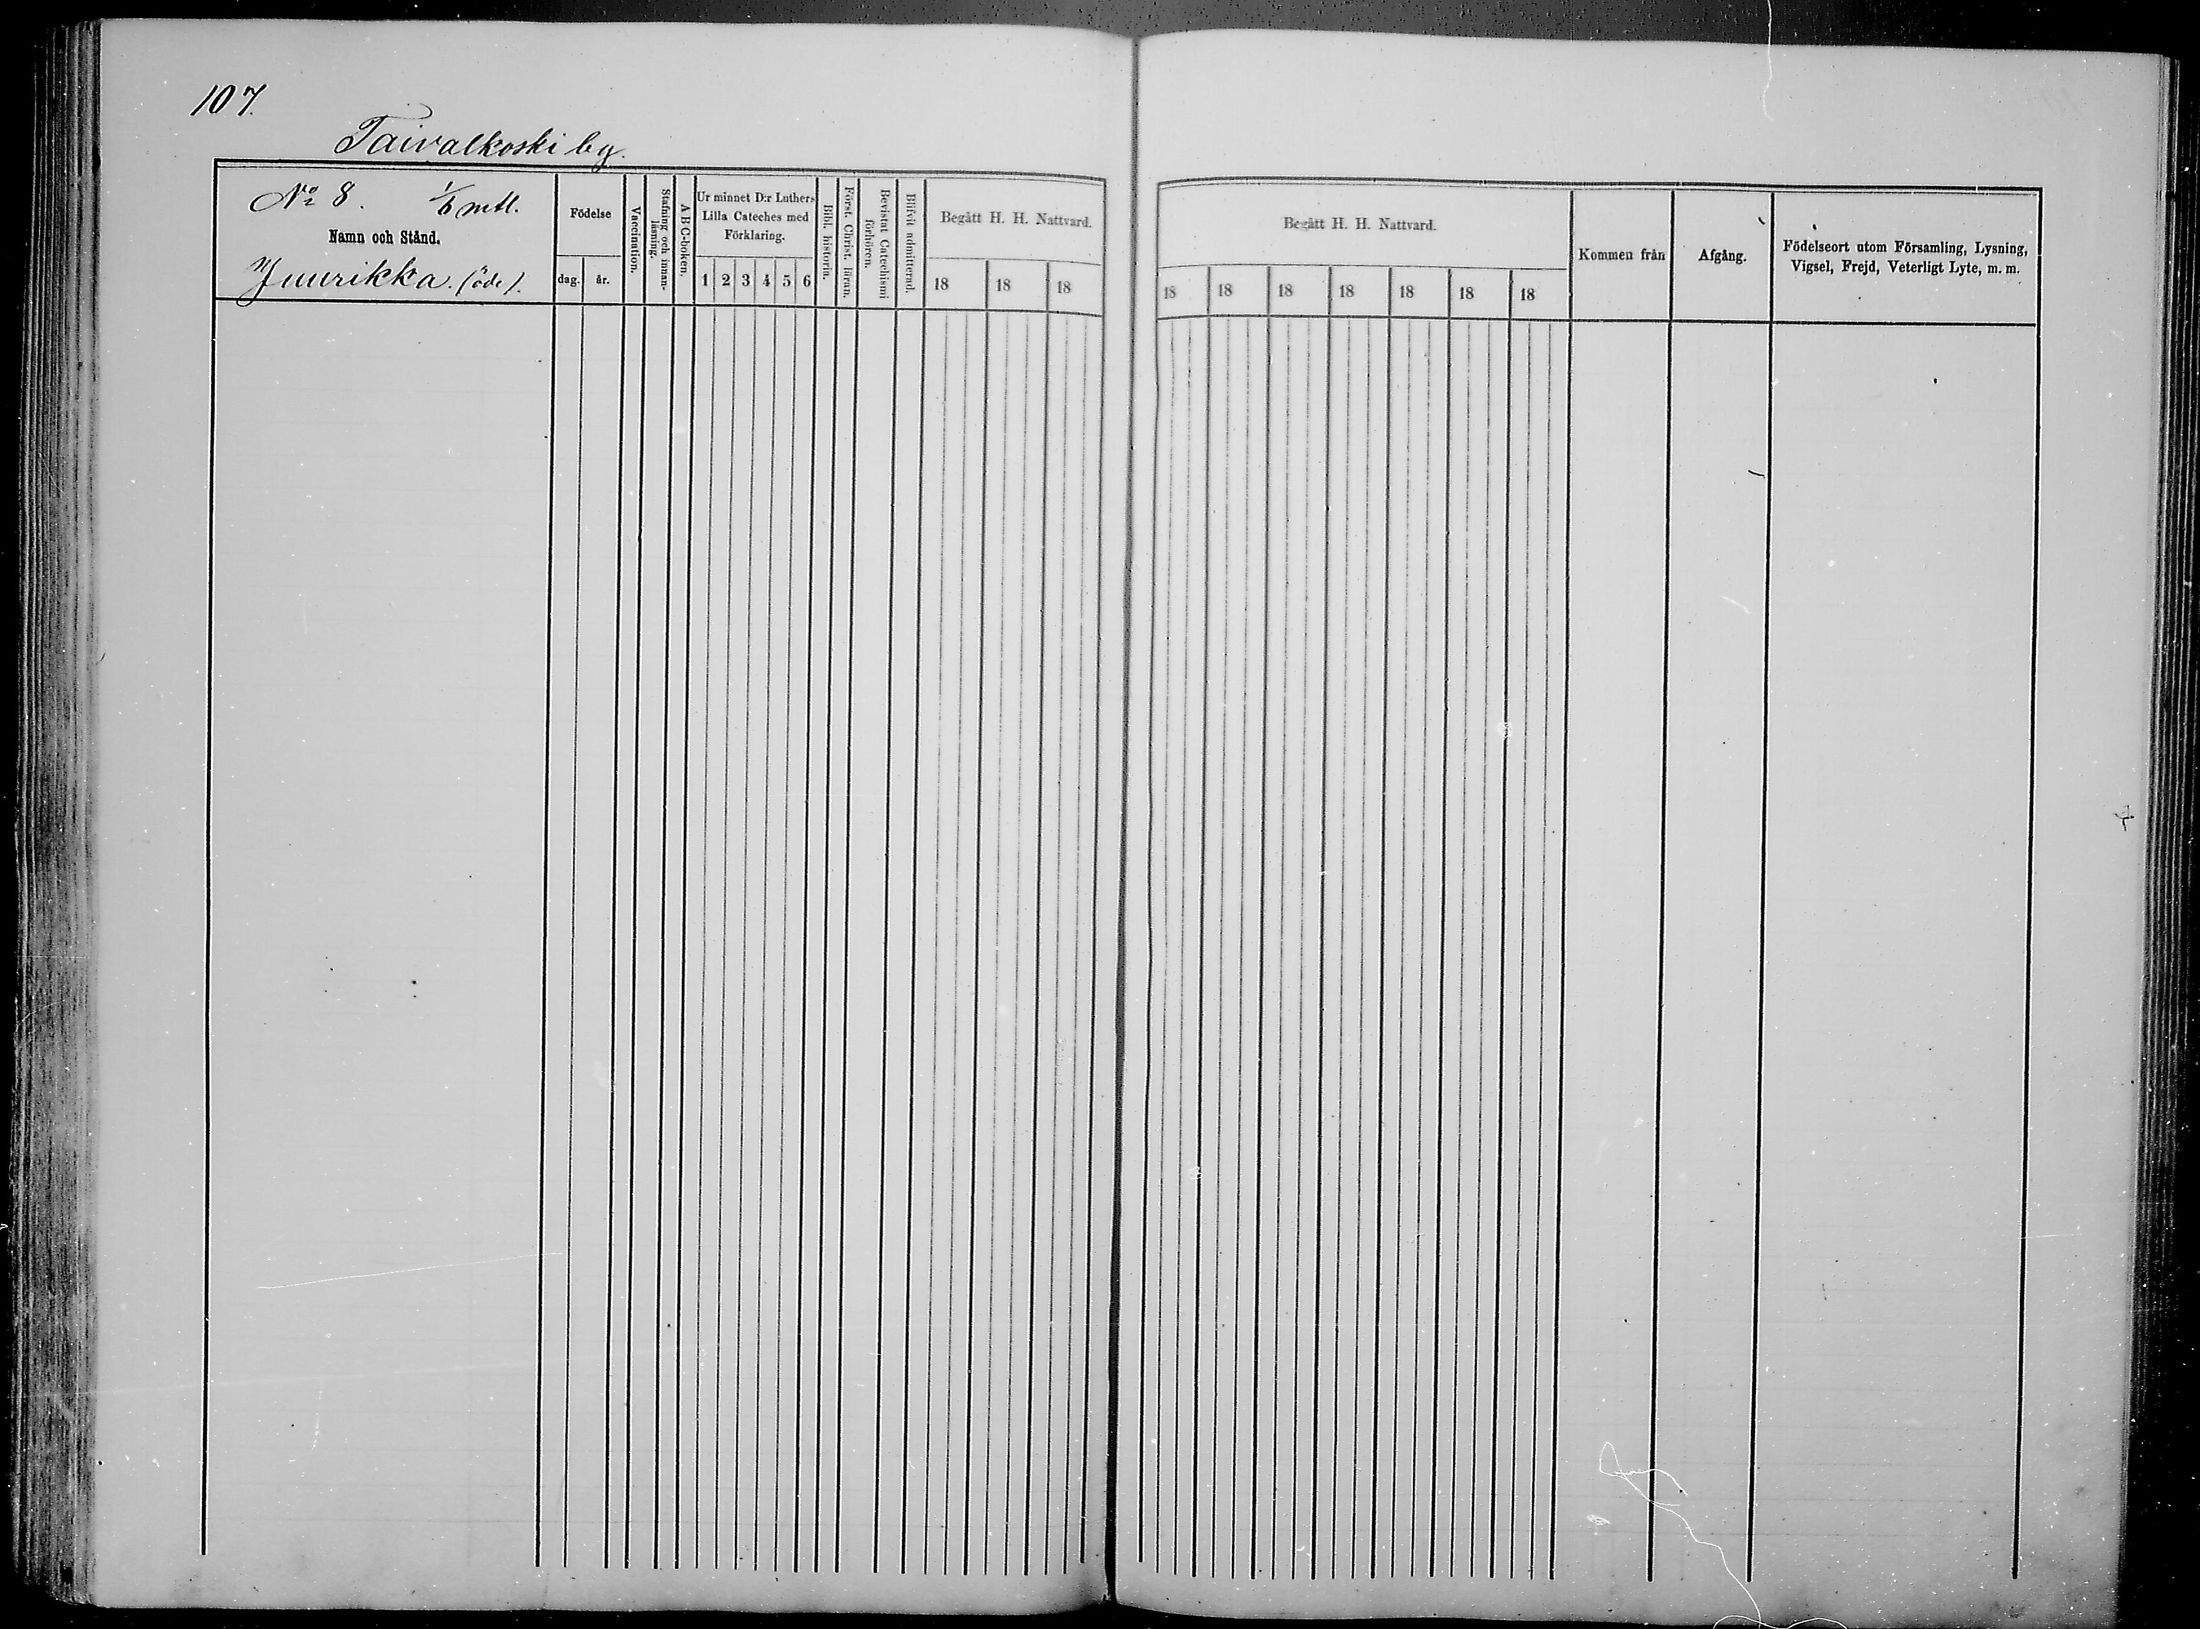 107.
Taivalkoski by.
No 8. 1/6 mtl.
Namn och Stånd.
Juurikka. (öde).
Födelse
dag. år.
Vaccination.
Stafning och innan-
läsning.
A B C-boken.
Ur minnet D:r Luthers
Lilla Cateches med
Förklaring.
1 2 3 4 5 6
Bibl. historia.
Först. Christ. läran.
Bevistat Catechismi
förhören.
Blifvit admitterad.
Begått H. H. Nattvard.
18 18 18
Begått H. H. Nattvard.
18 18 18 18 18 18 18
Kommen från
Afgång.
Födelseort utom Församling, Lysning,
Vigsel, Frejd, Veterligt Lyte, m. m.